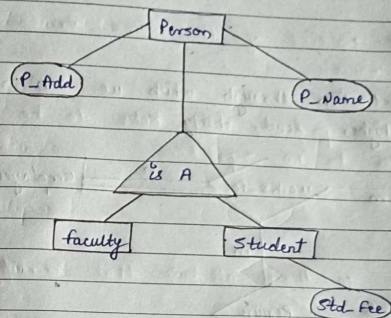 Person
P_Add
P_Name
is A
faculty
Student
Std_Fee